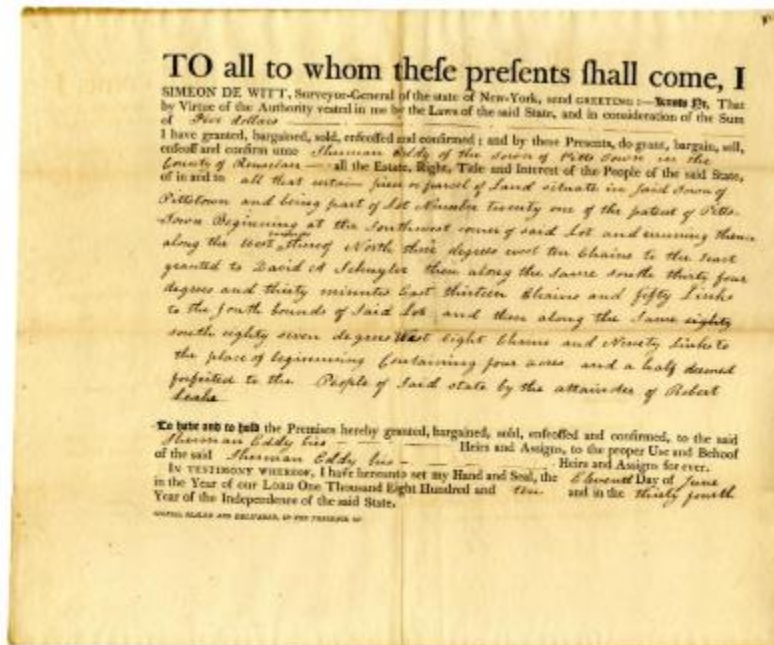 TO all to whom theſe preſents ſhall come, I
SIMEON DE WITT, Surveyor-General of the state of New-York, send GREETING :— Know Ye, That
by Virtue of the Authority vested in me by the Laws of the said State, and in consideration of the Sum
of Five dollars
I have granted, bargained, sold, enfeoffed and confirmed ; and by these Presents, do grant, bargain, sell,
enfeoff and confirm unto Sherman Eddy of the Town of Pitts Town in the
County of Rensselaer all the Estate, Right, Title and Interest of the People of the said State,
of in and to all that certain piece or parcel of Land situate in said Town of
Pittstown and being part of Lot Number twenty one of the patent of Pitts-
Town Beginning at the Southwest corner of said Lot and running thence
along the West thereof North three degrees west ten Chains to the
granted to David A Schuyler then along the same south thirty four
degrees and thirty minutes East thirteen Chains and fifty Links
to the south bounds of said Lot and then along the same eighty
south eighty seven degrees West eight Chains and Ninety Links to
the place of beginning Containing four acres and a half deemed
forfeited to the People of said state by the attainder of Robert
Leake
To have and to hold the Premises hereby granted, bargained, sold, enfeoffed and confirmed, to the said
Sherman Eddy his Heirs and Assigns, to the proper Use and Behoof
of the said Sherman Eddy his Heirs and Assigns for ever.
IN TESTIMONY WHEREOF, I have hereunto set my Hand and Seal, the Eleventh Day of June
in the Year of our LORD One Thousand Eight Hundred and ten and in the thirty fourth
Year of the Independence of the said State.
SIGNED, SEALED AND DELIVERED, IN THE PRESENCE OF